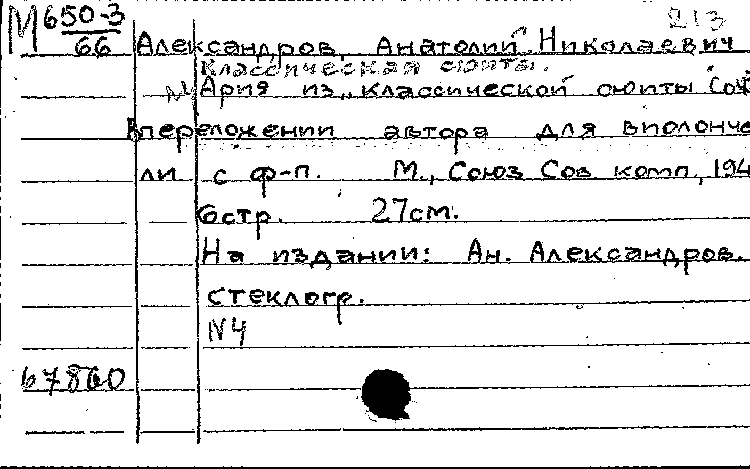 213
М 650-3
66
Александров, Анатолий Николаевич
Классическая сюита.
Ария из „классической сюиты Соч
В переложении автора для виолонче
ли с ф-п. М., Союз Сов комп, 194
6стр. 27см.
На издании: Ан. Александров.
стеклогр.
N4
67860